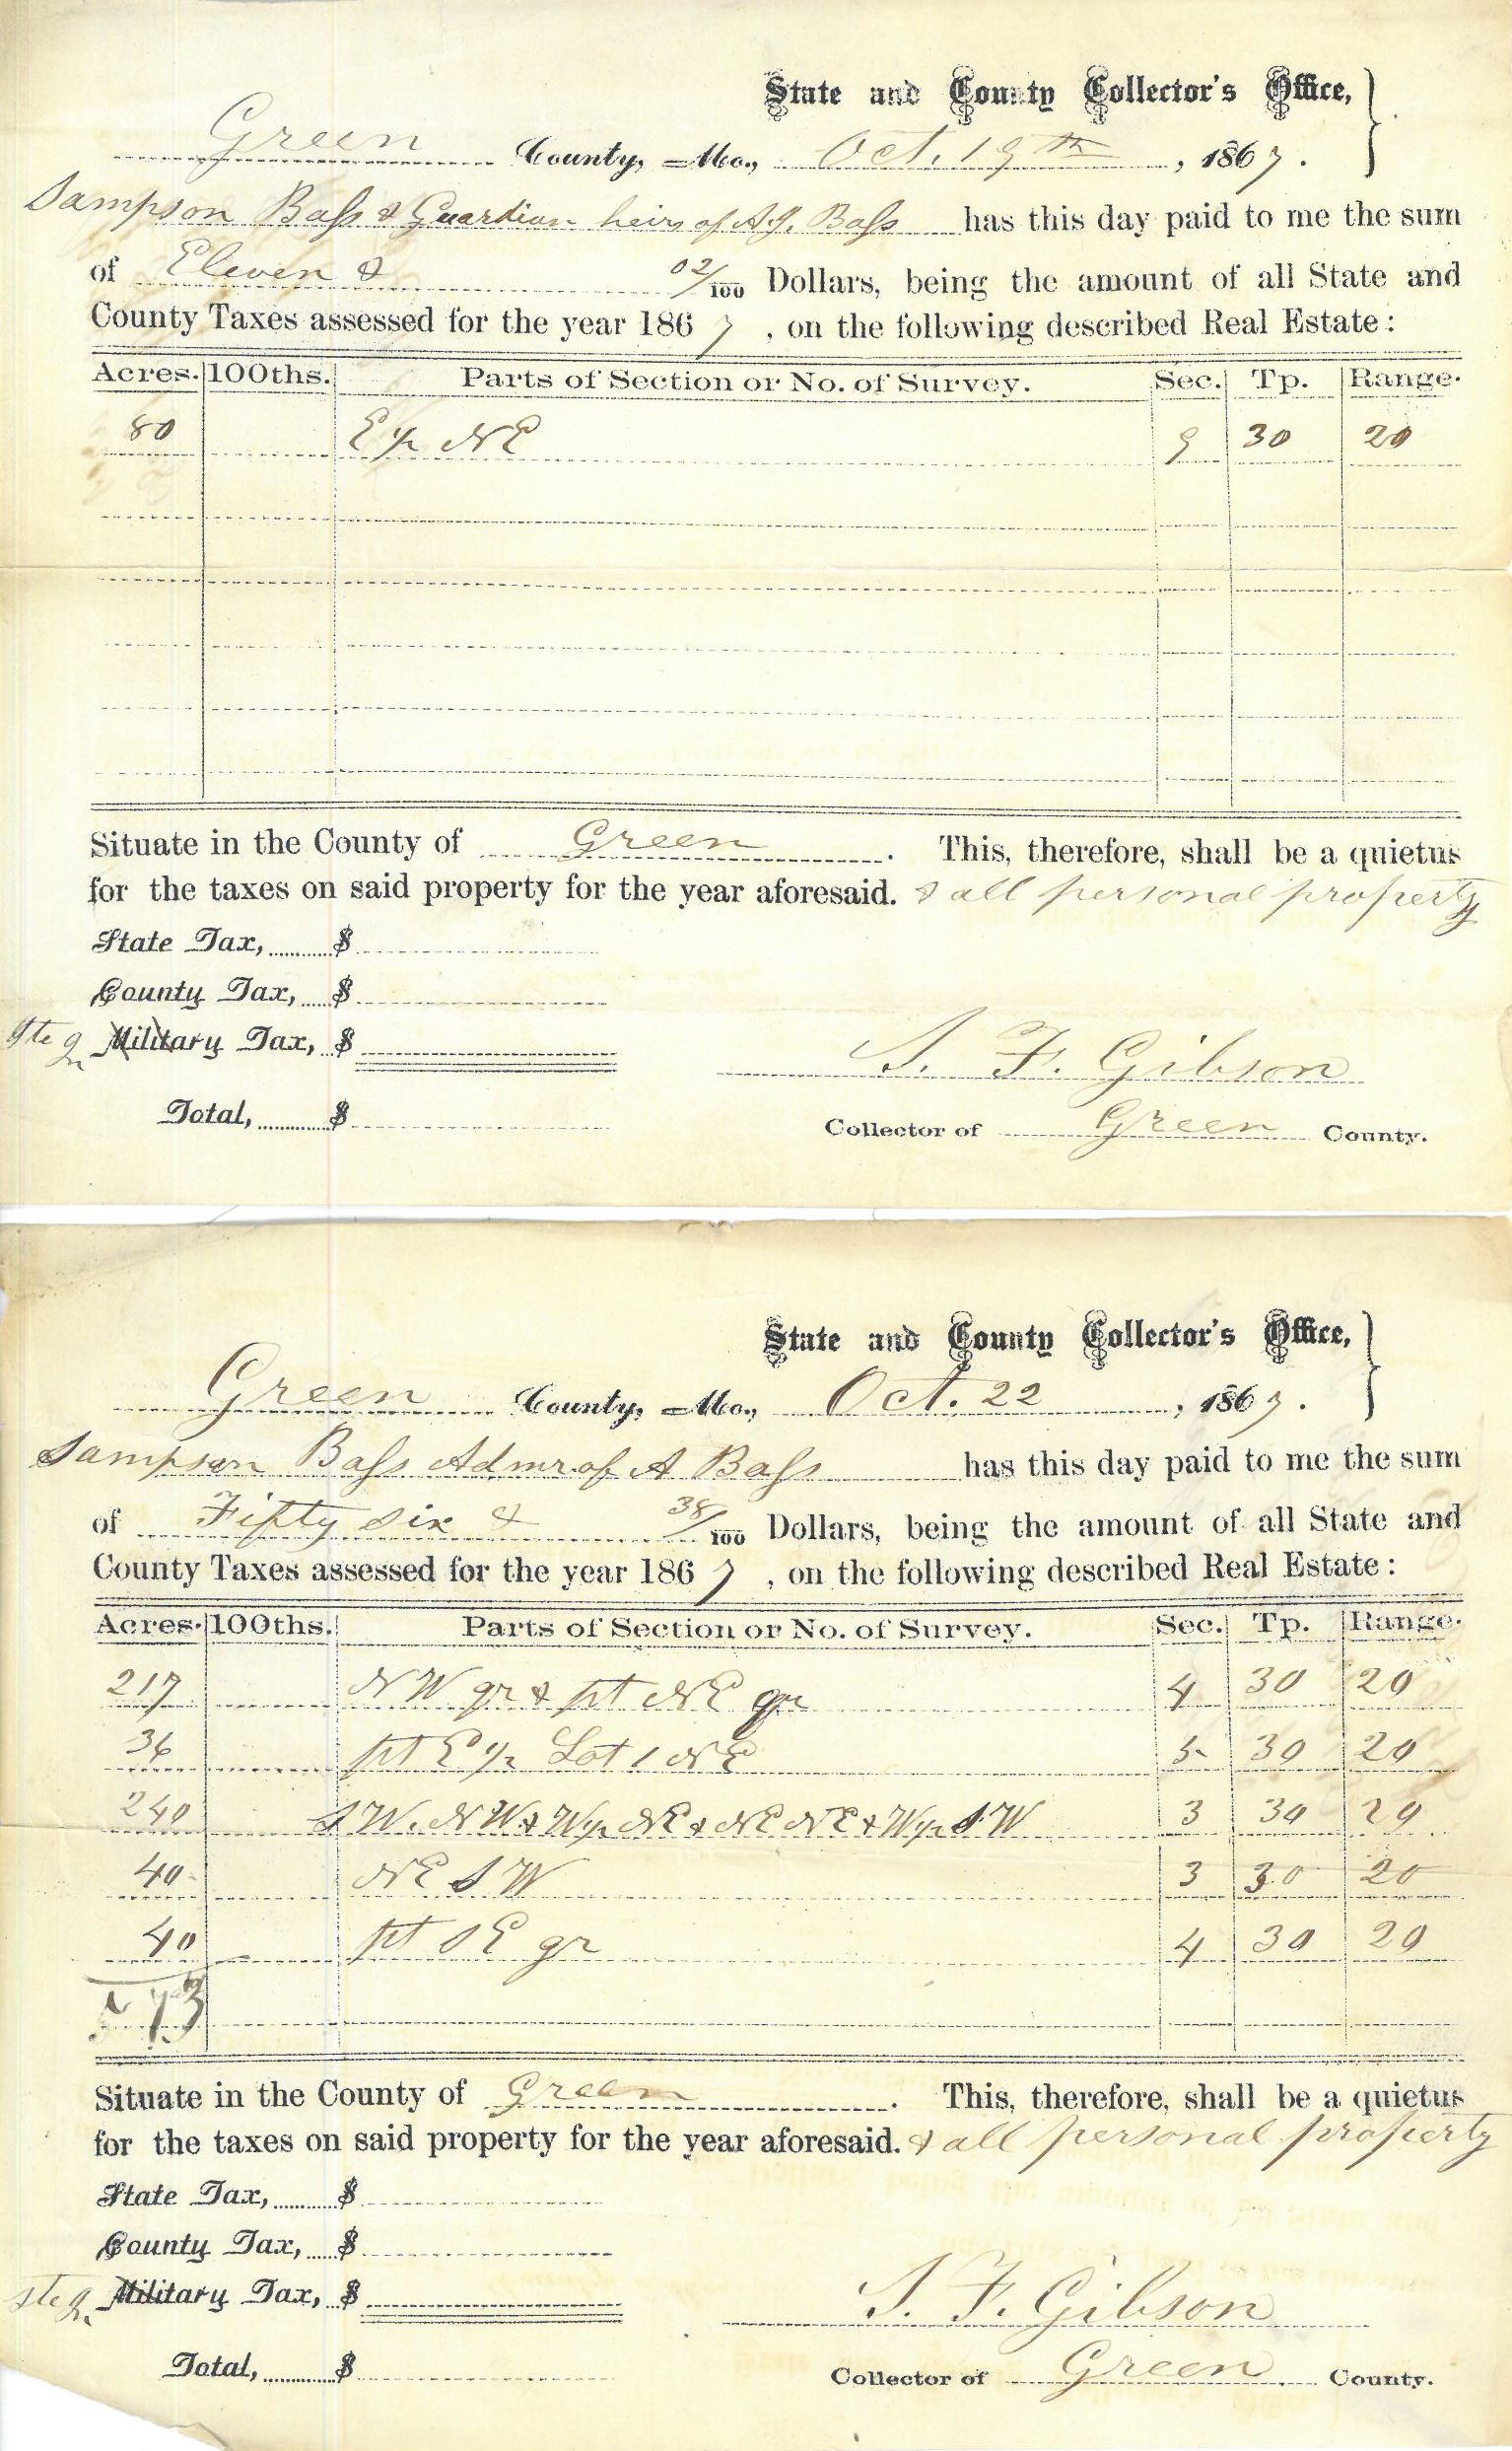 State and County Collector's Office,
Green County, Mo., Oct. 19th, 1867.
Sampson Bass & Guardian heirs of A.J. Bass has this day paid to me the sum
of Eleven & 02/100 Dollars, being the amount of all State and
County Taxes assessed for the year 1867, on the following described Real Estate:
Acres. 100ths. Parts of Section or No. of Survey. Sec. Tp. Range.
80 E ½ NE 9 30 20
Situate in the County of Green. This, therefore, shall be a quietus
for the taxes on said property for the year aforesaid. & all personal property
State Tax, $
County Tax, $
Military Tax, $
S. F. Gibson
Total, $
Collector of Green County.
State and County Collector's Office,
Green County, Mo., Oct. 22, 1867.
Sampson Bass Admr of A Bass has this day paid to me the sum
of Fifty six & 38/100 Dollars, being the amount of all State and
County Taxes assessed for the year 1867, on the following described Real Estate:
Acres. 100ths. Parts of Section or No. of Survey. Sec. Tp. Range.
217 NW qr & pt NE qr 4 30 20
36 pt E ½ Lot 1 NE 5 30 20
240 SW. NW & W ½ NE & NE NE & W ½ SW 3 30 20
40 NE SW 3 30 20
40 pt SE qr 4 30 20
573
Situate in the County of Green. This, therefore, shall be a quietus
for the taxes on said property for the year aforesaid. & all personal property
State Tax, $
County Tax, $
Military Tax, $
S. F. Gibson
Total, $
Collector of Green County.